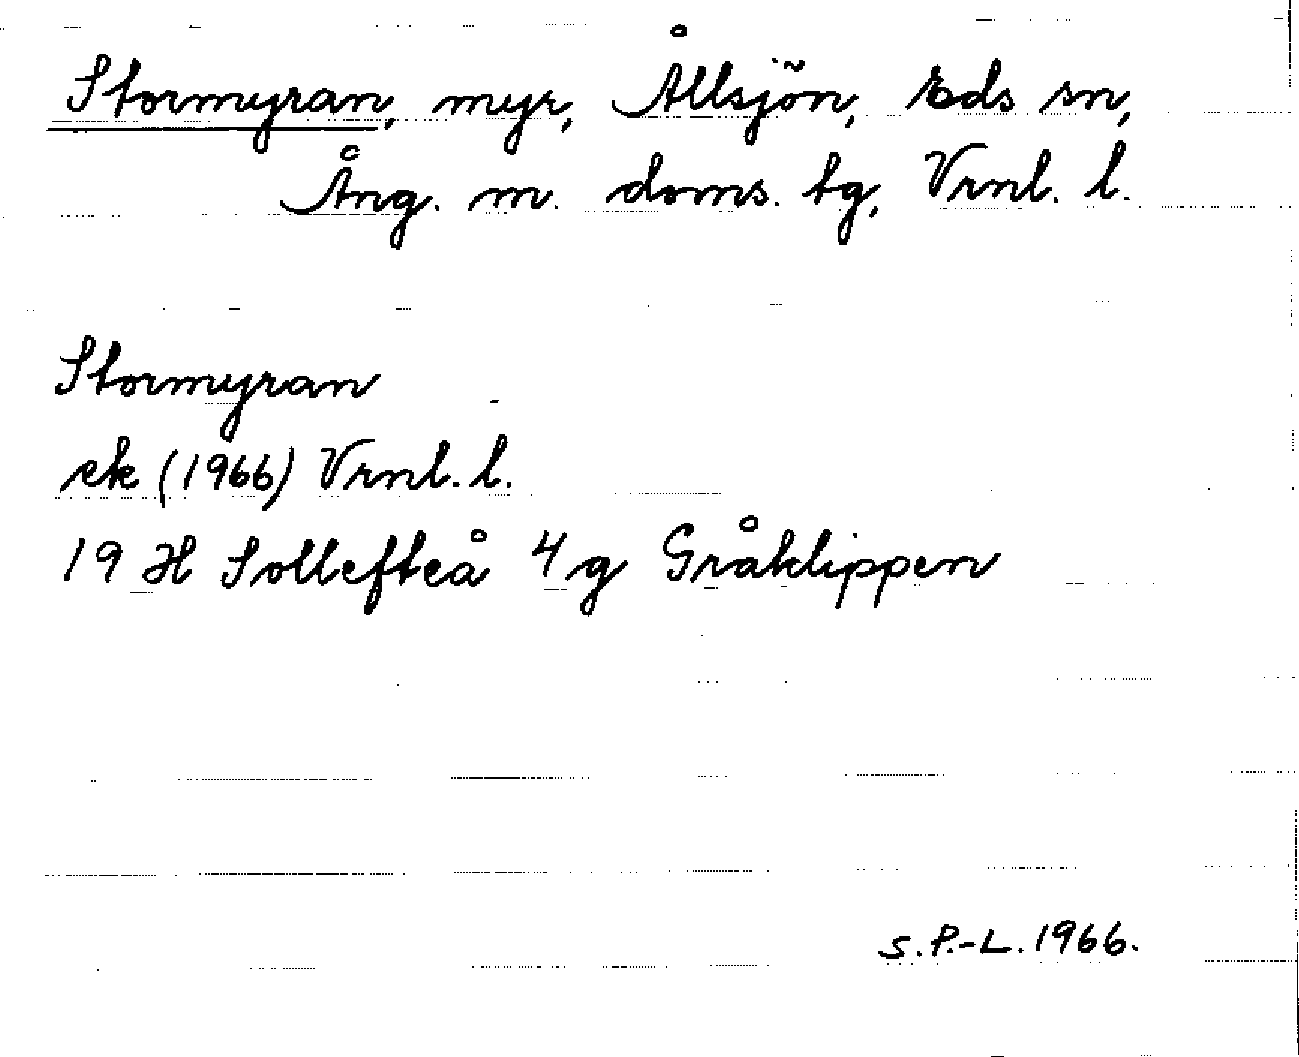 Stormyran, myr, Ållsjön, Eds sn,
Ång. m. doms. tg, Vrnl. l.
Stormyran
ek (1966) Vrnl. l.
19 H Sollefteå 4 g Gråklippen
S. P.-L. 1966.